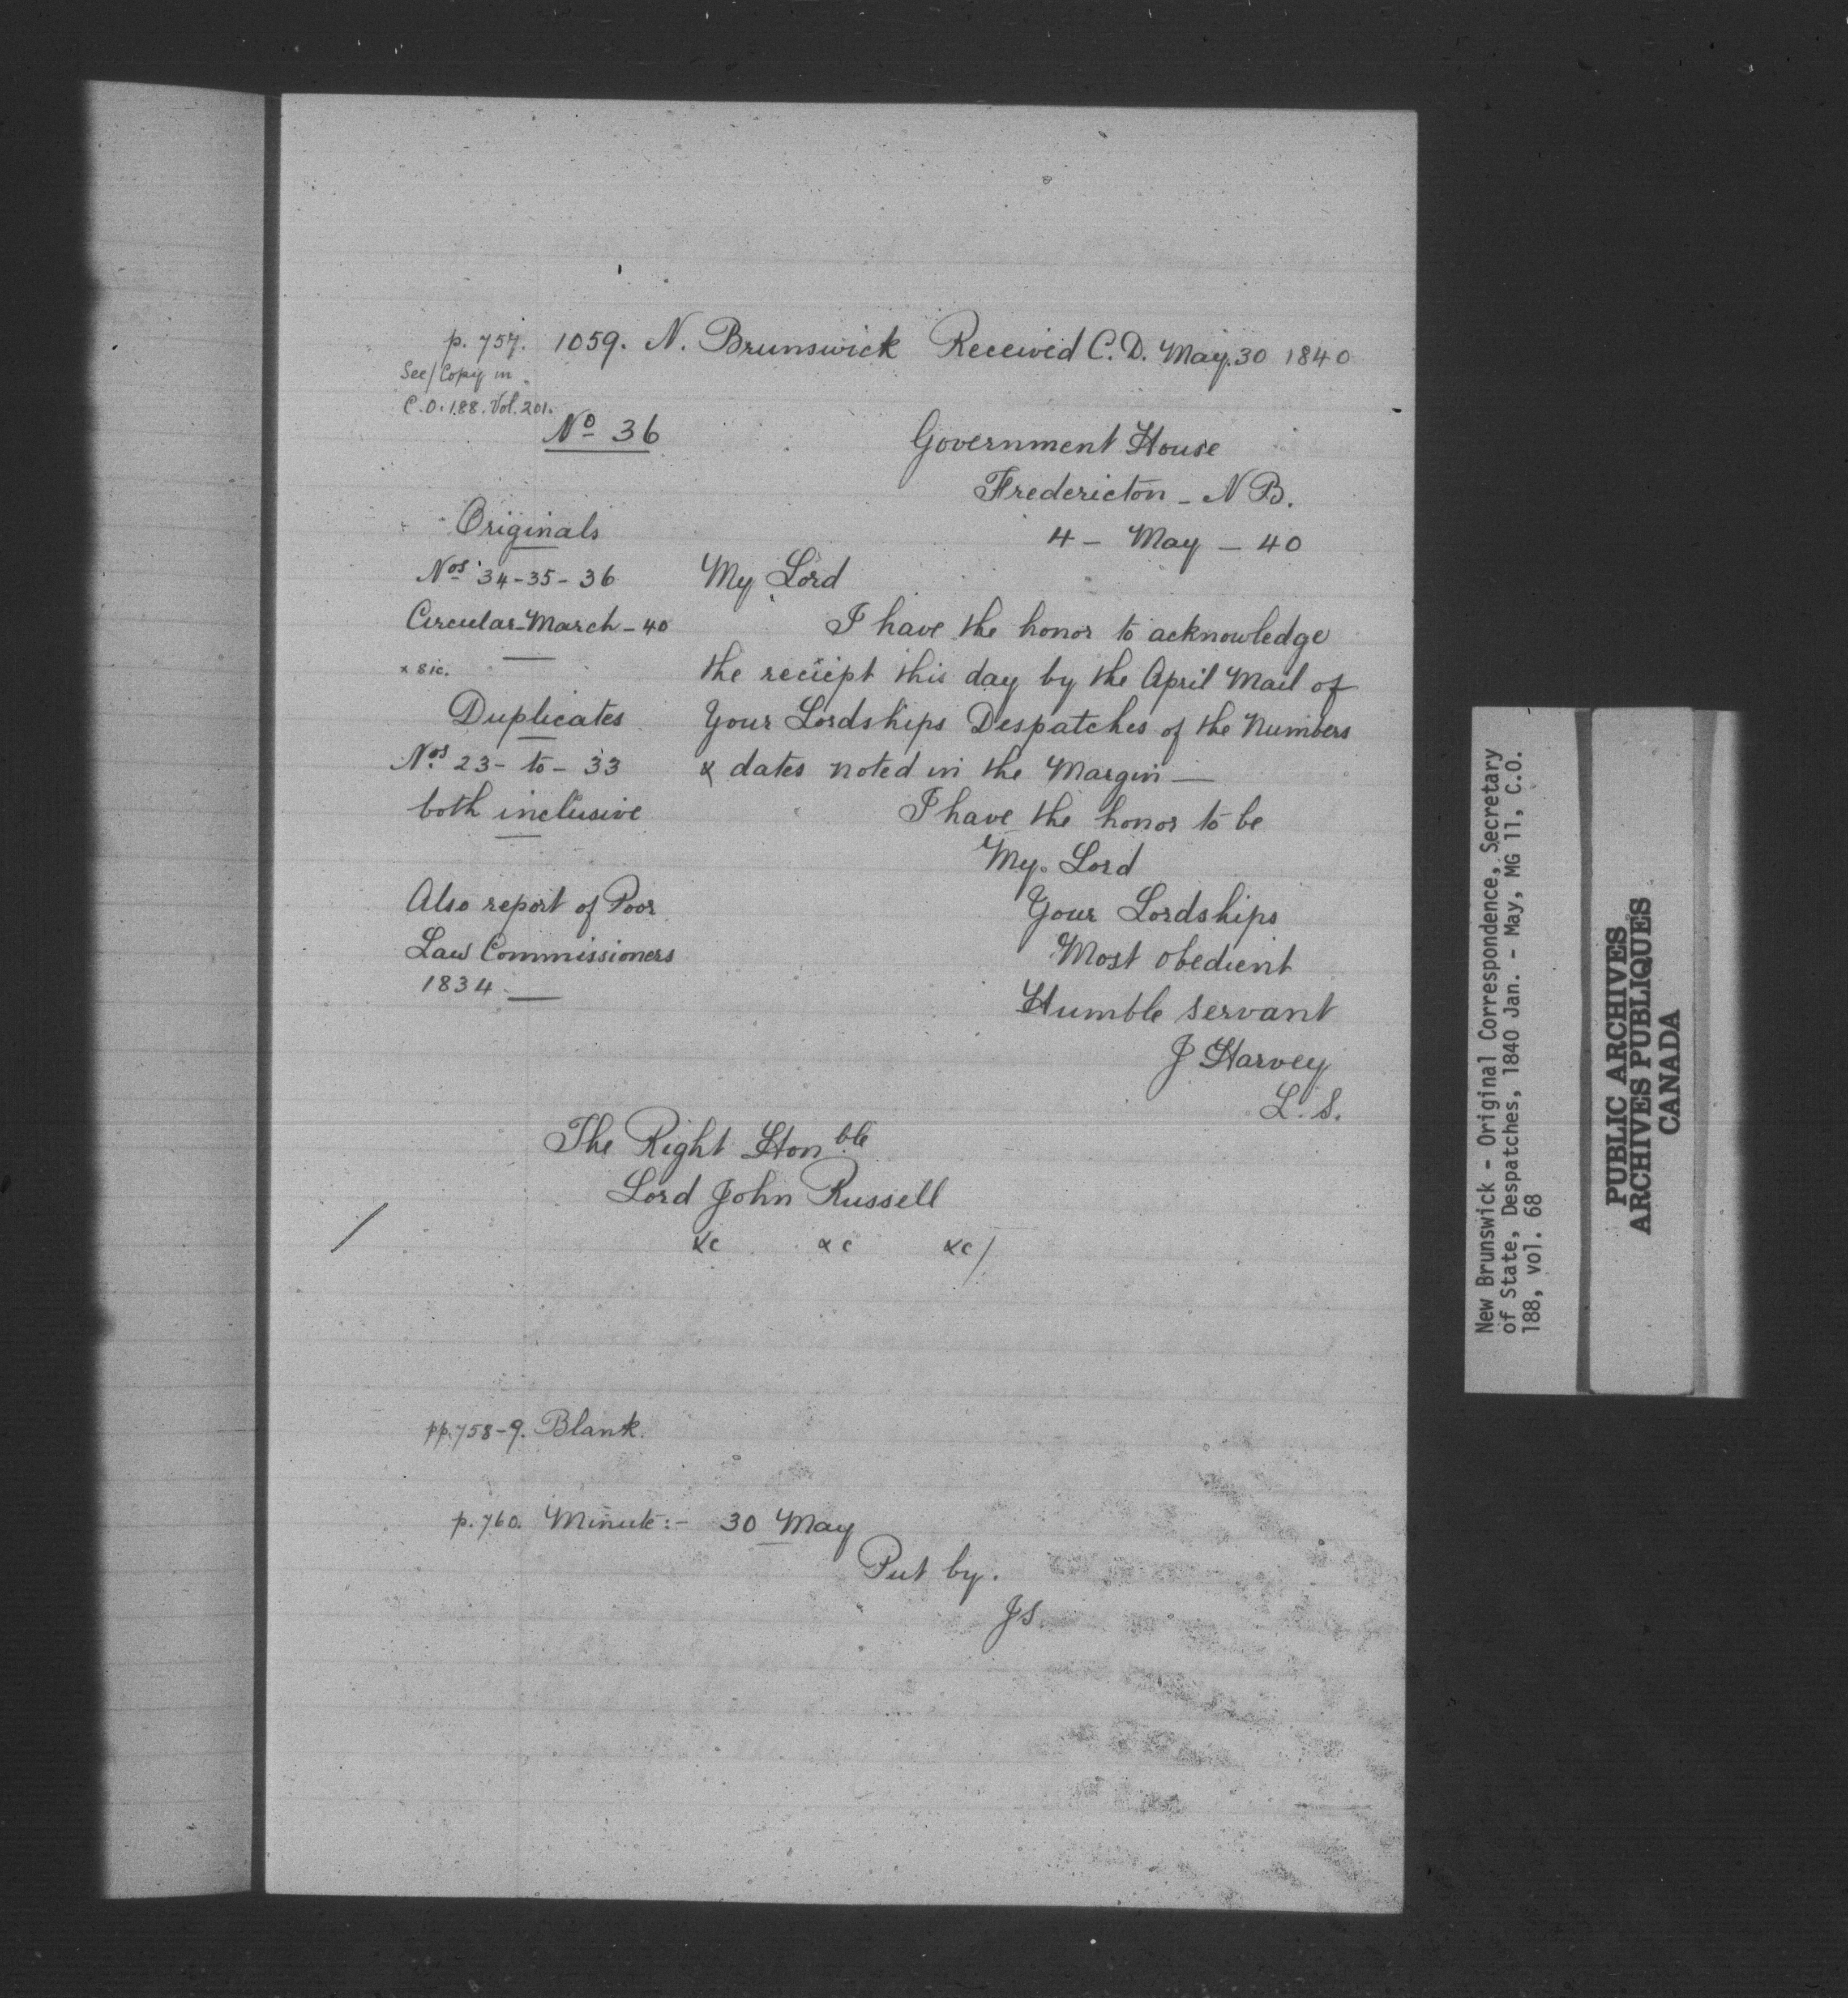 p. 757. 1059. N. Brunswick Received C.D. May. 30 1840
See/Copy in
C.O. 188. Vol. 201.
No 36
Government House
Fredericton - N B.
4 - May - 40
Originals
Nos 34-35-36
Circular-March-40
x sic.
Duplicates
Nos 23- to - 33
both inclusive
Also report of Poor
Law Commissioners
1834 —
My Lord
I have the honor to acknowledge
the reciept this day by the April Mail of
Your Lordships Despatches of the Numbers
& dates noted in the Margin —
I have the honor to be
My. Lord
Your Lordships
Most obedient
Humble servant
J Harvey
L. S.
The Right Honble
Lord John Russell
&c &c &c/
pp. 758-9. Blank.
p. 760. Minute:- 30 May
Put by.
JS.
New Brunswick - Original Correspondence, Secretary
of State, Despatches, 1840 Jan. - May, MG 11, C.O.
188, vol. 68
PUBLIC ARCHIVES
ARCHIVES PUBLIQUES
CANADA